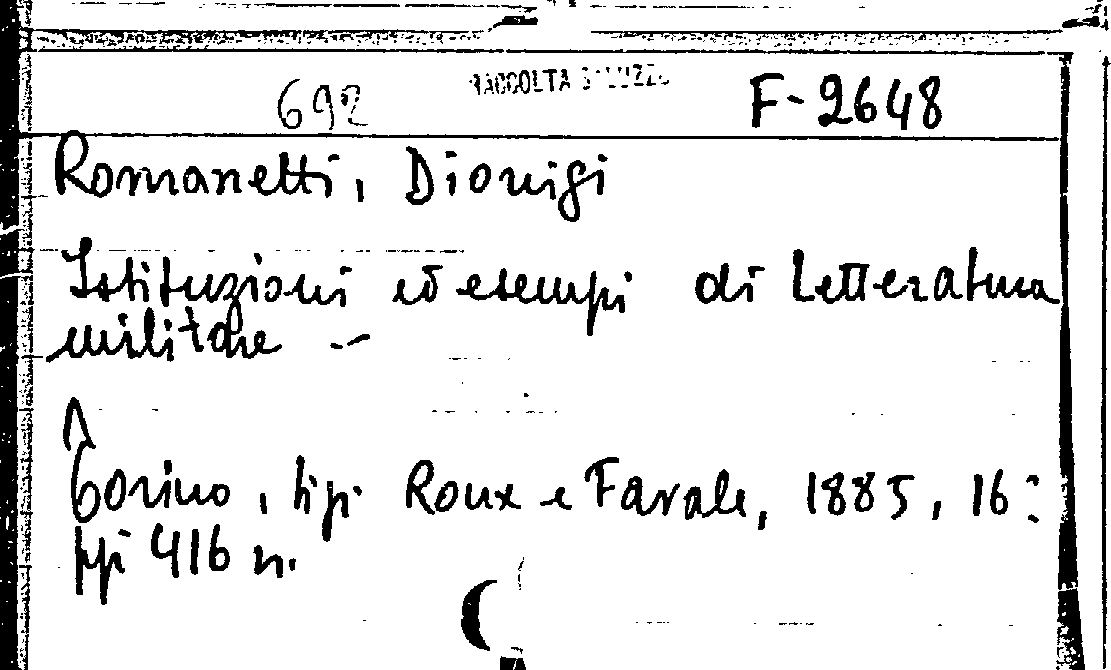 692 RACCOLTA SALUZZO F-2648
Romanetti, Dionigi
Istituzioni ed esempi di letteratura
militare -
Torino, tip. Roux e Favale, 1885, 16:
pp. 416 n.